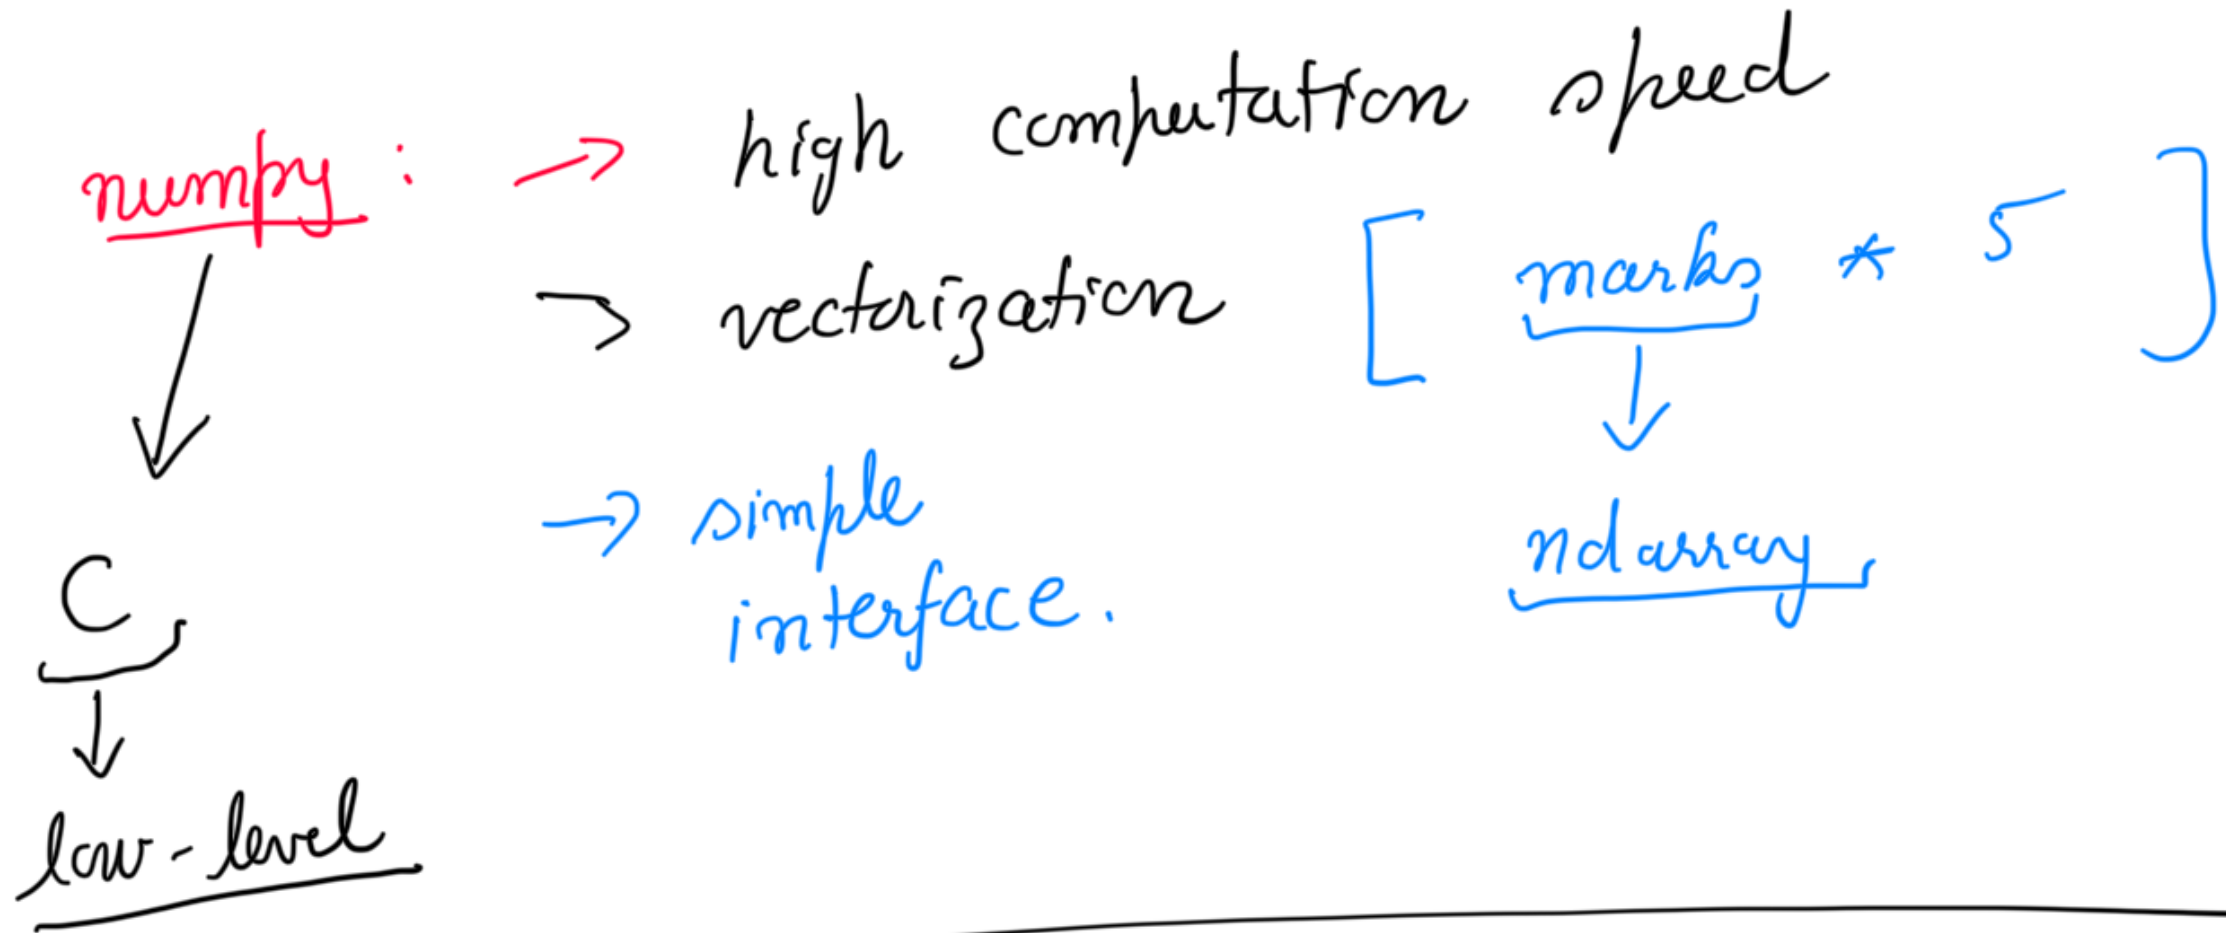 numpy : → high computation speed
→ vectorization [ marks * 5 ]
↓
→ simple
interface.
ndarray
↓
C
↓
low-level